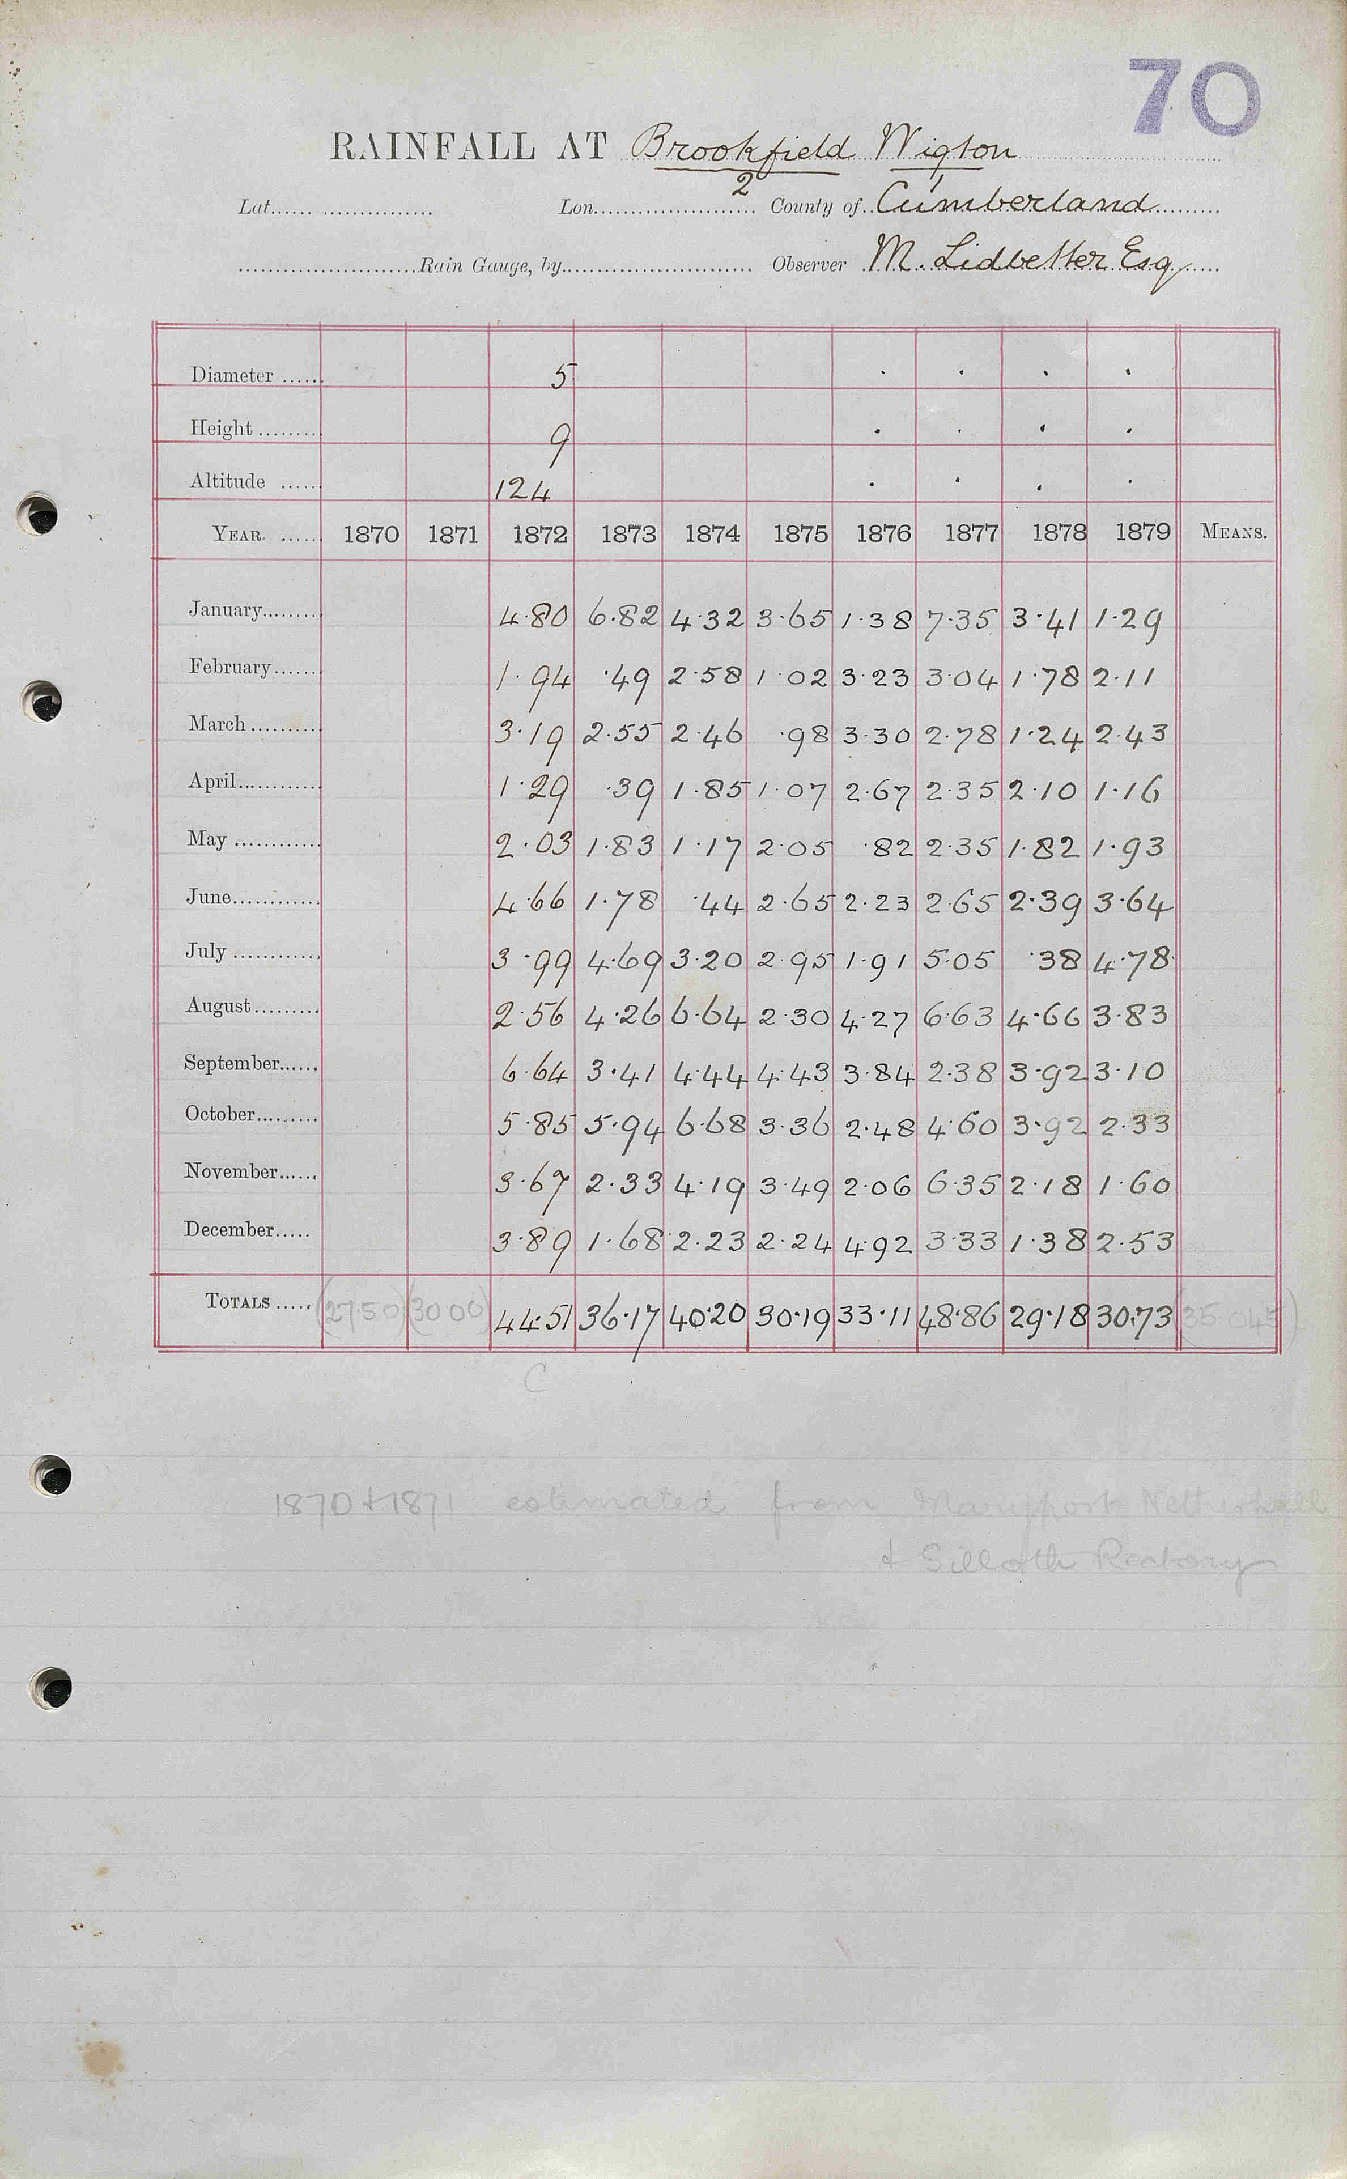 70
RAINFALL AT Brookfield Wigton
2 1
Lat. Lon. County of Cumberland
Rain Gauge, by Observer M. Lidbetter Esq
Diameter 5 . . . .
Height 9 . . . .
Altitude 124 . . . .
YEAR. 1870 1871 1872 1873 1874 1875 1876 1877 1878 1879 MEANS.
January 4.80 6.82 4.32 3.65 1.38 7.35 3.41 1.29
February 1.94 .49 2.58 1.02 3.23 3.04 1.78 2.11
March 3.19 2.55 2.46 .98 3.30 2.78 1.24 2.43
April 1.29 .39 1.85 1.07 2.67 2.35 2.10 1.16
May 2.03 1.83 1.17 2.05 .82 2.35 1.82 1.93
June 4.66 1.78 .44 2.65 2.23 2.65 2.39 3.64
July 3.99 4.69 3.20 2.95 1.91 5.05 .38 4.78
August 2.56 4.26 6.64 2.30 4.27 6.63 4.66 3.83
September 6.64 3.41 4.44 4.43 3.84 2.38 3.92 3.10
October 5.85 5.94 6.68 3.36 2.48 4.60 3.92 2.33
November 3.67 2.33 4.19 3.49 2.06 6.35 2.18 1.60
December 3.89 1.68 2.23 2.24 4.92 3.33 1.38 2.53
TOTALS (27.50) (30.00) 44.51 36.17 40.20 30.19 33.11 48.86 29.18 30.73 (35.045)
C
1870 + 1871 estimated from Maryport Netherhall
+ Silloth Rectory